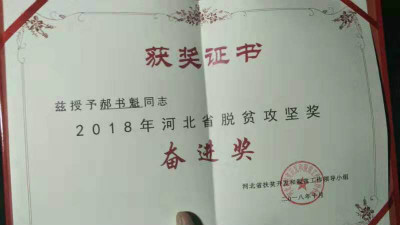 获奖证书
兹授予郝书魁同志
2018年河北省脱贫攻坚奖
奋进奖
河北省扶贫开发和脱贫工作领导小组
二〇一八年十月